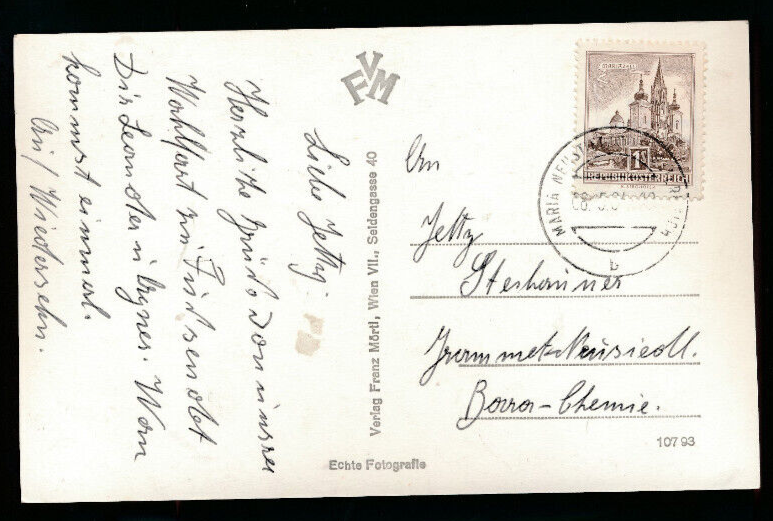 Liebe Jetty.
Herzliche Grüße von unsrer
Wahlfart zu
Dir Leonster u. Agnes. Wan
kommst einmal.
Auf Wiedersehn.
FVM
Verlag Franz Mörtl, Wien VII., Seidengasse 40
Echte Fotografie
MARIAZELL
1
REPUBLIK ÖSTERREICH
MARIA NEUST
b
An
Jetty
Steshauner
Grammetneusiedl.
Borra-Chemie.
10793